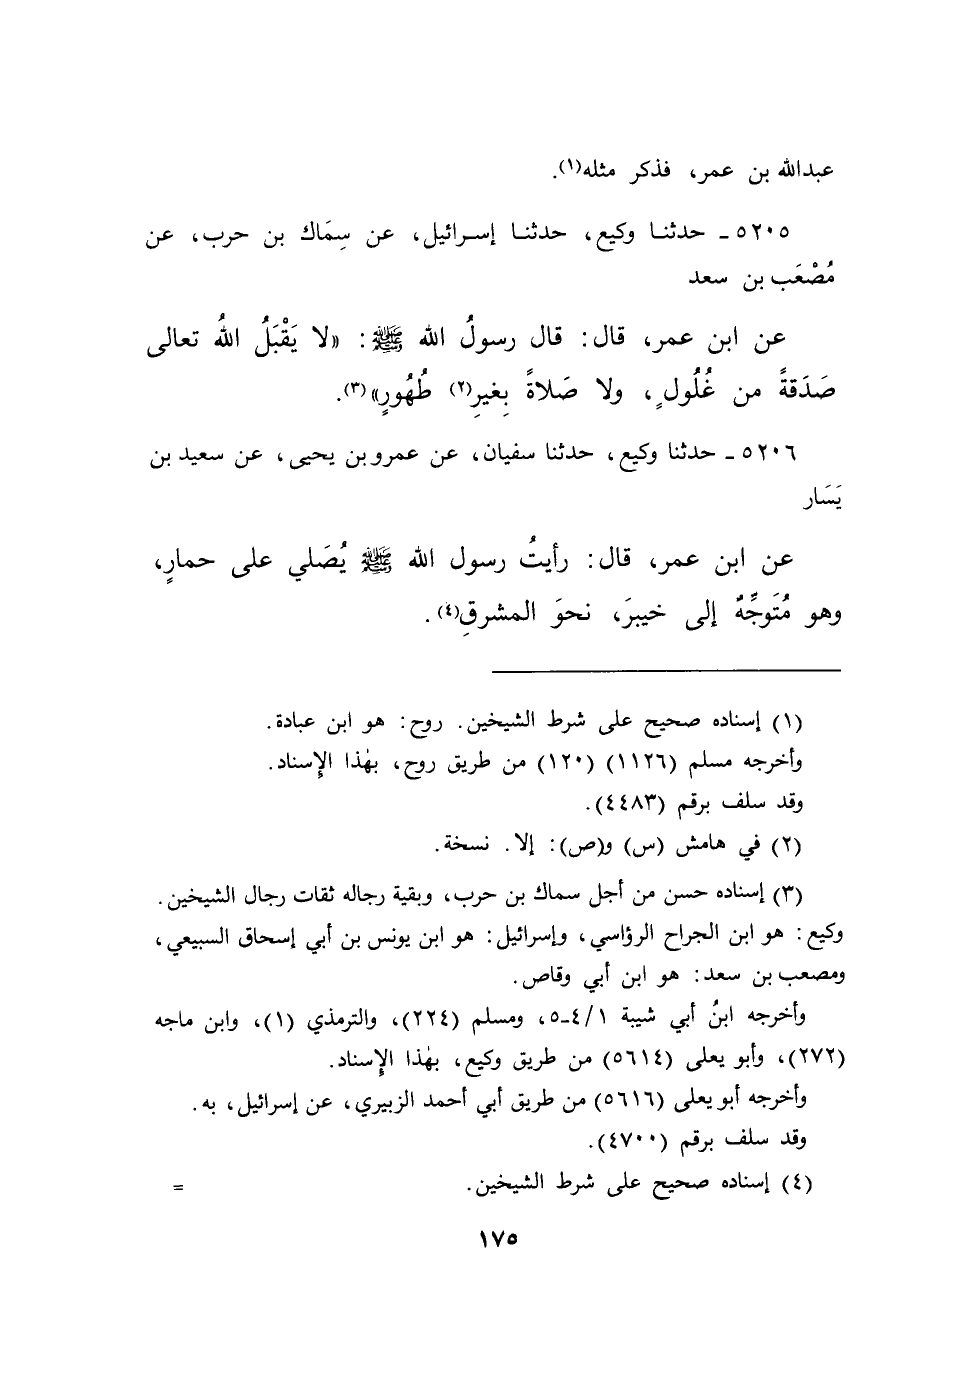 عبدالله بن عمر، فذكر مثله(١).
٥٢٠٥ ـ حدثنـا وكيع، حدثنـا إسـرائيل، عن سِمَاك بن حرب، عن
مُصْعَب بن سعد
عن ابن عمر، قال: قال رسولُ الله ﷺ: «لا يَقْبَلُ اللهُ تعالى
صَدَقةً من غُلُولٍ، ولا صَلاةً بِغيرِ(٢) طُهُورٍ»(٣).
٥٢٠٦ ـ حدثنا وكيع، حدثنا سفيان، عن عمرو بن يحيى، عن سعيد بن
يَسَار
عن ابن عمر، قال: رأيتُ رسول الله ﷺ يُصَلي على حمارٍ،
وهو مُتَوجِّهٌ إلى خيبرَ، نحوَ المشرقِ(٤).
(١) إسناده صحيح على شرط الشيخين. روح: هو ابن عبادة.
وأخرجه مسلم (١١٢٦) (١٢٠) من طريق روح، بهٰذا الإسناد.
وقد سلف برقم (٤٤٨٣).
(٢) في هامش (س) و(ص): إلا. نسخة.
(٣) إسناده حسن من أجل سماك بن حرب، وبقية رجاله ثقات رجال الشيخين.
وكيع: هو ابن الجراح الرؤاسي، وإسرائيل: هو ابن يونس بن أبي إسحاق السبيعي،
ومصعب بن سعد: هو ابن أبي وقاص.
وأخرجه ابنُ أبي شيبة ٤/١ـ٥، ومسلم (٢٢٤)، والترمذي (١)، وابن ماجه
(٢٧٢)، وأبو يعلى (٥٦١٤) من طريق وكيع، بهٰذا الإسناد.
وأخرجه أبو يعلى (٥٦١٦) من طريق أبي أحمد الزبيري، عن إسرائيل، به.
وقد سلف برقم (٤٧٠٠).
(٤) إسناده صحيح على شرط الشيخين. =
١٧٥